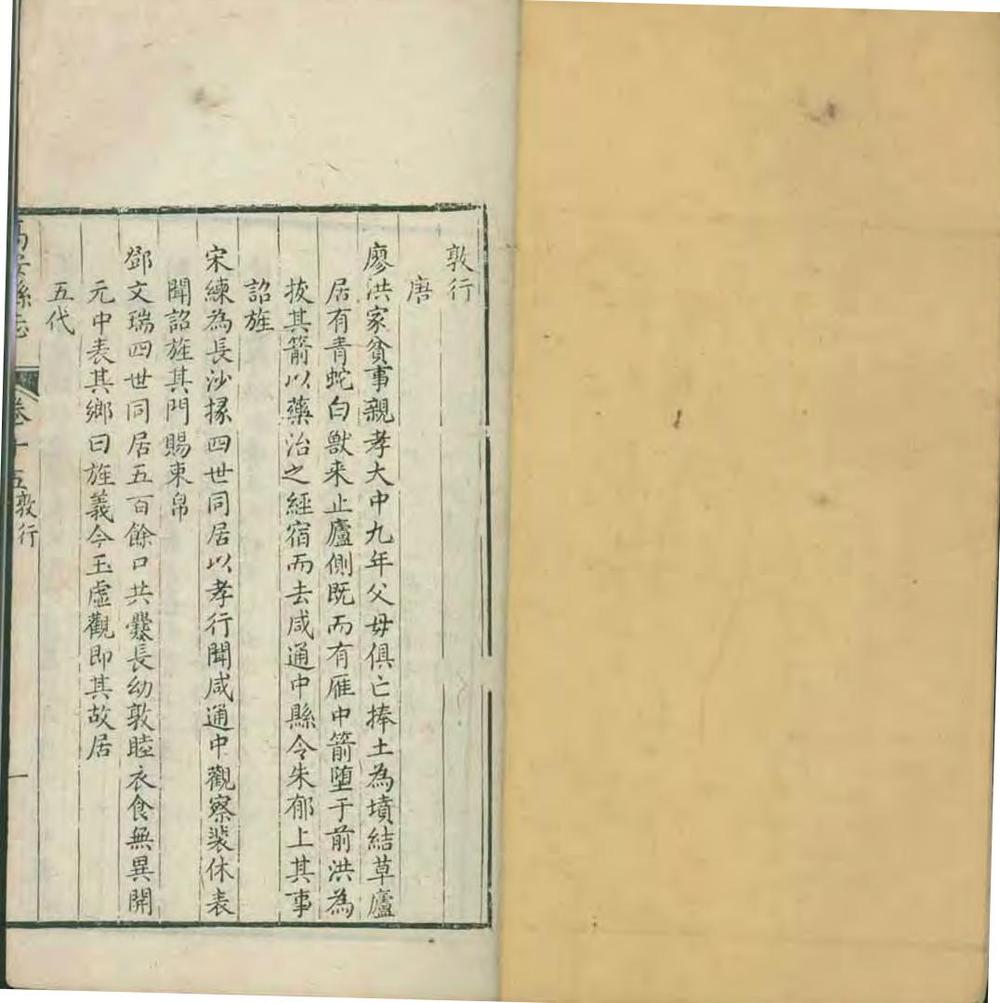 敦行
唐
廖洪家貧事親孝大中九年父母俱亡捧土為墳結草廬
居有青蛇白獸来止廬側既而有雁中箭墮于前洪為
拔其箭以藥治之經宿而去咸通中縣令朱郁上其事
詔旌
宋練為長沙掾四世同居以孝行聞咸通中觀察裴休表
聞詔旌其門賜束帛
鄧文瑞四世同居五百餘口共爨長幼敦睦衣食無異開
元中表其鄉曰旌義今玉虛觀即其故居
五代
高安縣志 卷十五 敦行 一